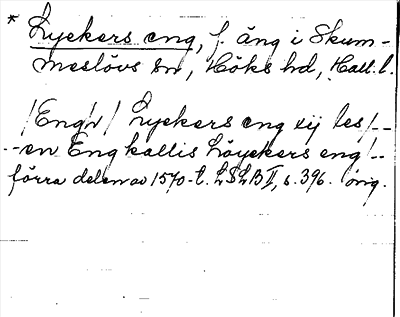 * Lyckers eng, f. äng i Skum-
meslövs sn, Höks hd, Hall. l.
/Engh/ Lyckers eng xij les /--
--en Eng kallis Löyckers eng /--
förra delen av 1570-t. LSLB II, s. 396. orig.